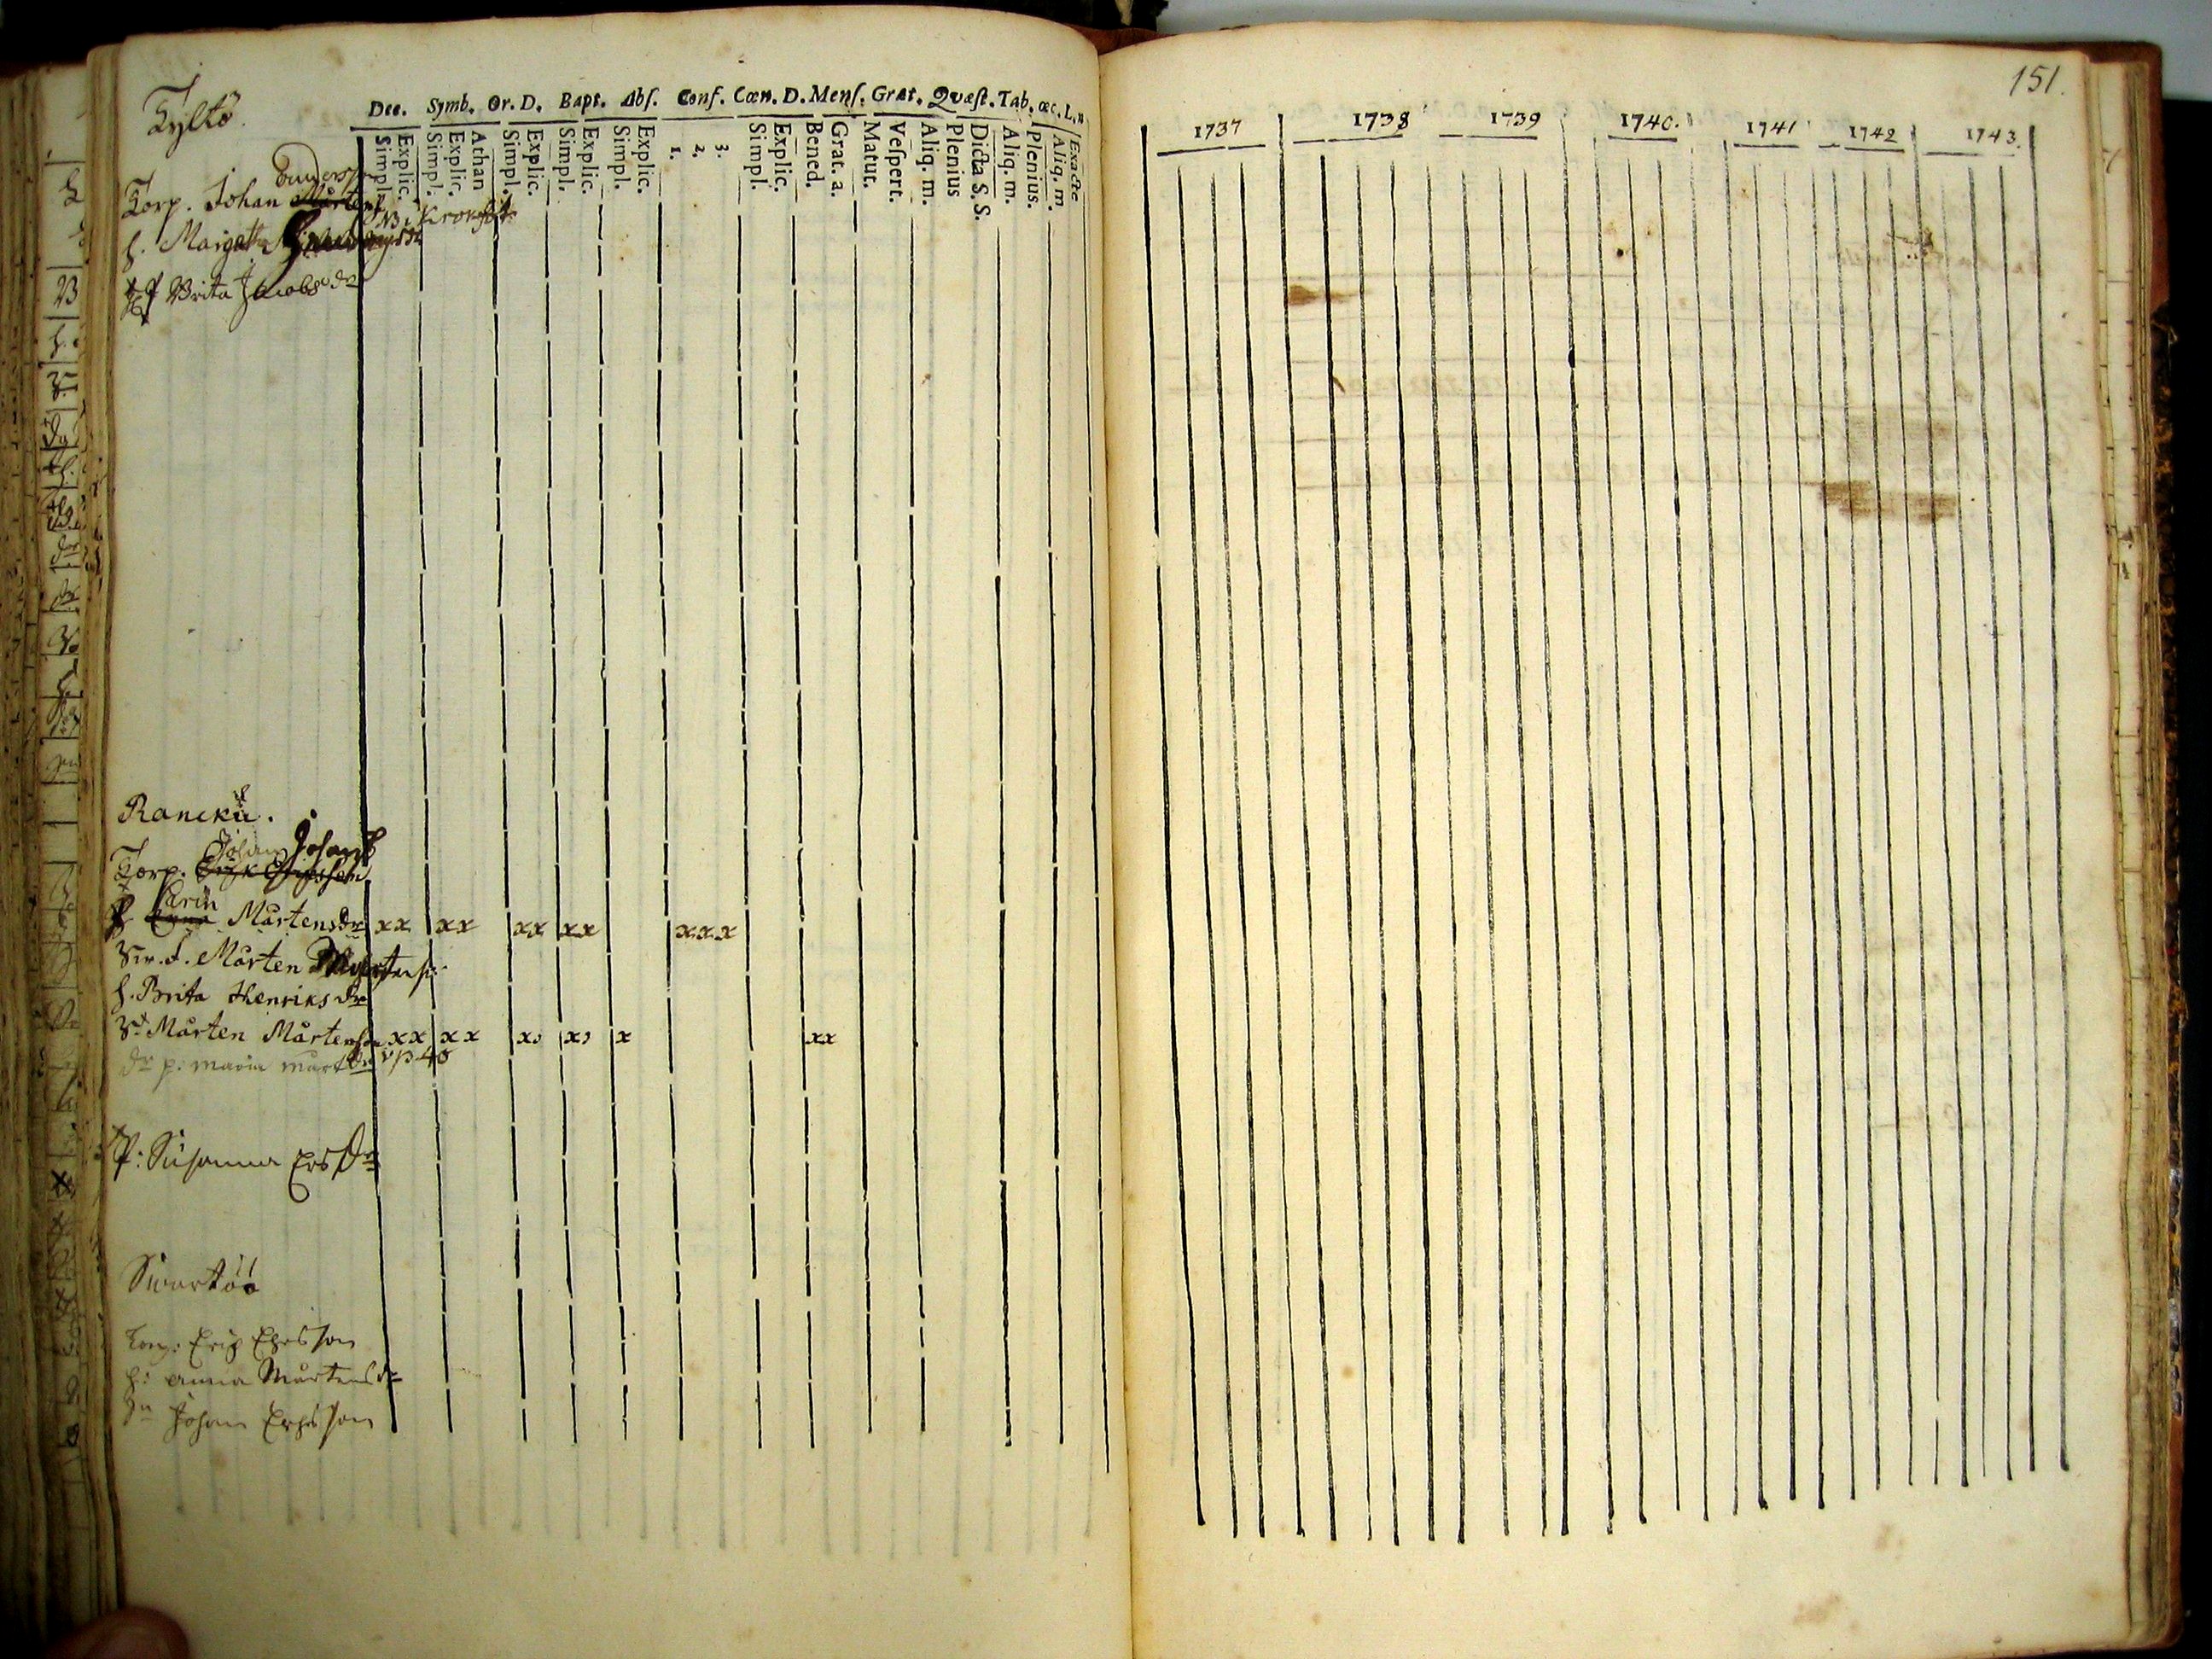 Kyltö
Dec. Symb. Or. D. Bapt. Abs. Conf. Cœn. D. Mens. Grat. Quæst. Tab. œc. L. n
Simpl. Explic. Simpl. Explic. Athan Simpl. Explic. Simpl. Explic. Simpl. Explic. 1. 2. 3. Simpl. Explic. Bened. Grat. a. Matut. Vespert. Aliq. m. Plenius Dicta S. S. Aliq. m. Plenius. Aliq. m. Exacte
Anderss
Torp. Johan Mårtens
h. Margatha
Brita Jacobsdr
Ranckü.
Johan Johans
Torp. Erik Ersson
Carin
Anna Mårtensdr xx xx xx xx xxx
Mårten Mårtens
h. Brita Henriksdr
Mårten Mårtenson xx xx x x x xx
dr p: maria mårtdr
P: Susanna Ersdr
Swartöö
Torp: Erich Ersson
h: anna Mårtensdr
Johan Ersson
151.
1737 1738 1739 1740. 1741 1742 1743.